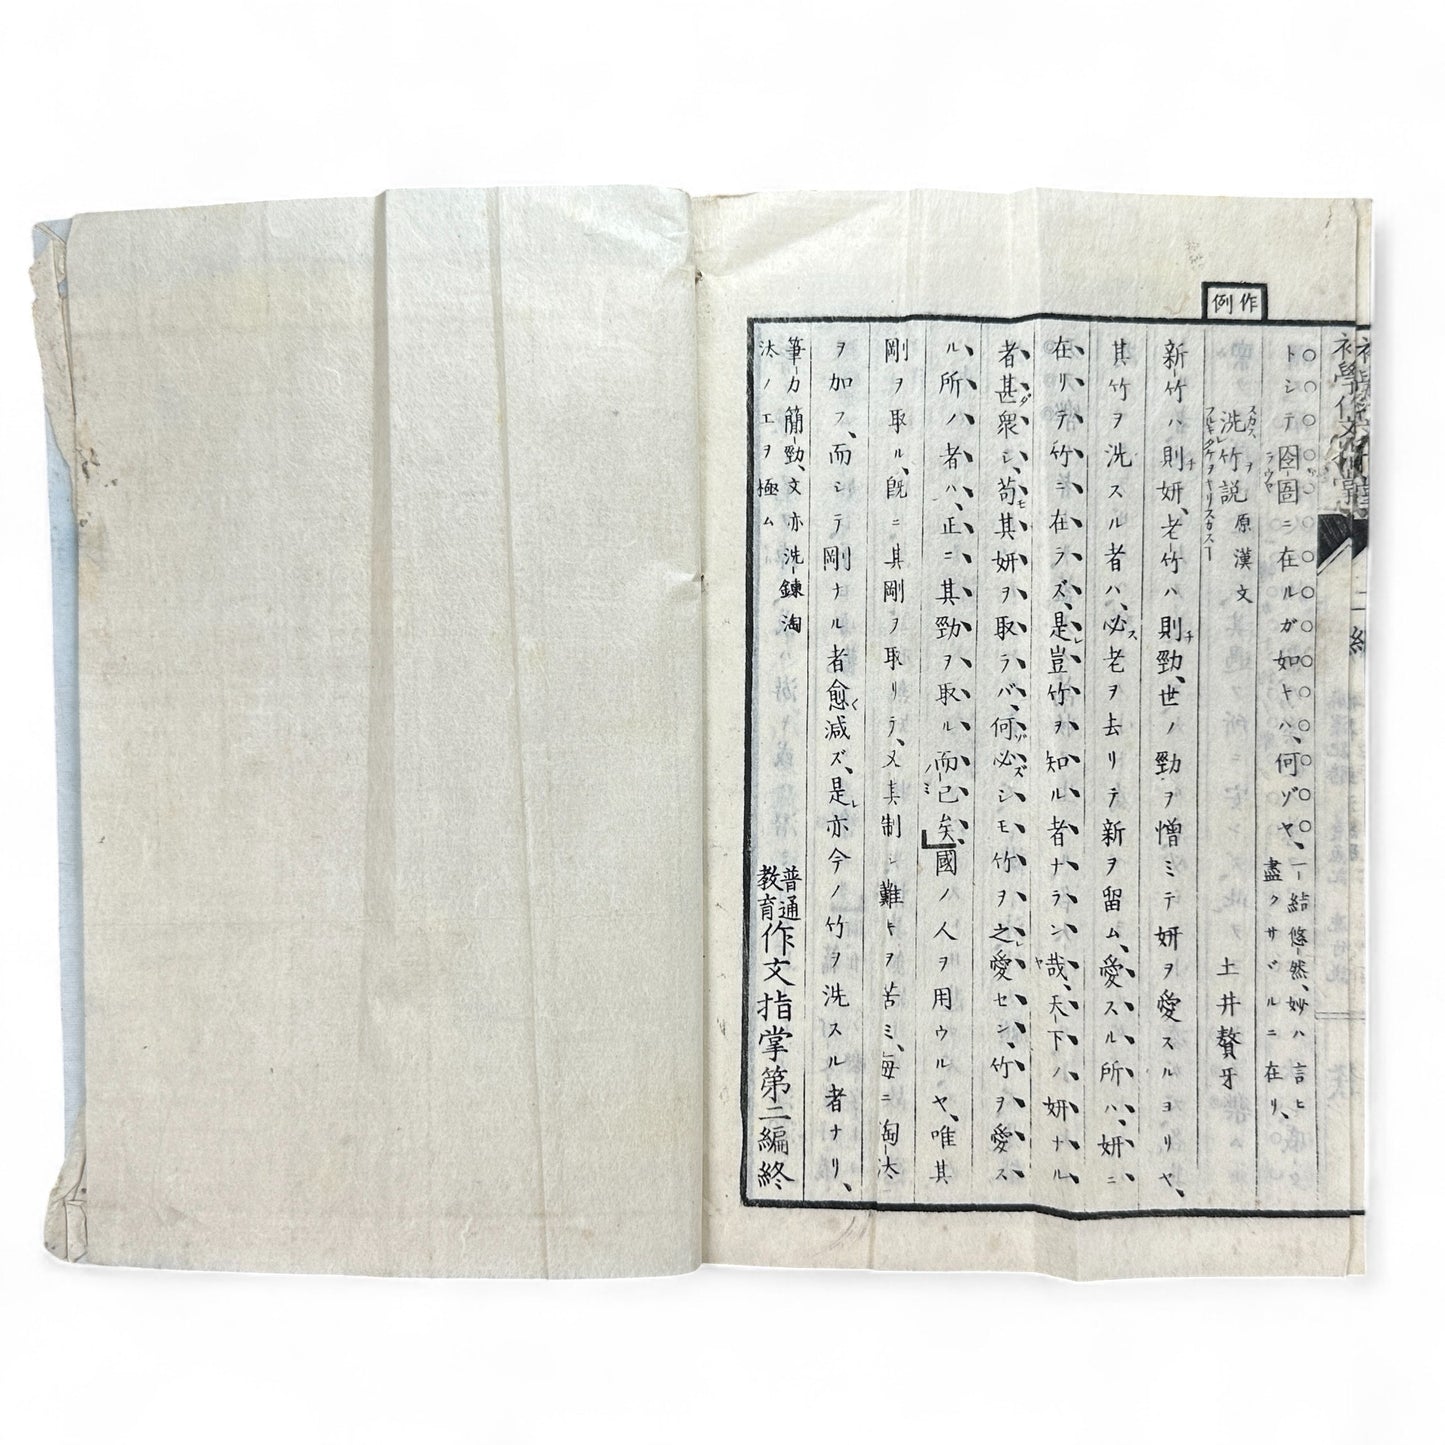 作例
トシテ囹圄ニ在ルガ如キハ、何ゾヤ、一結悠然、妙ハ言ヒ
盡クサヾルニ在リ、
洗竹説 原漢文 土井贅牙
新竹ハ則チ妍、老竹ハ則チ勁、世ノ勁ヲ憎ミテ妍ヲ愛スルヨリヤ、
其竹ヲ洗スル者ハ、必ス老ヲ去リテ新ヲ留ム、愛スル所ハ、妍ニ
在リテ竹ニ在ラズ、是レ豈竹ヲ知ル者ナラン哉、天下ノ妍ナル
者甚ダ衆シ、苟モ其妍ヲ取ラバ、何ゾ必ズシモ竹ヲ之レ愛セン、竹ヲ愛ス
ル所ノ者ハ、正ニ其勁ヲ取ル而已矣、國ノ人ヲ用ウルヤ、唯其
剛ヲ取ル、既ニ其剛ヲ取リテ、又其制シ難キヲ苦ミ、毎ニ淘汰
ヲ加フ、而シテ剛ナル者愈く減ズ、是レ亦今ノ竹ヲ洗スル者ナリ、
筆力簡勁、文亦洗鍊淘
汰ノ工ヲ極ム
普通教育作文指掌第二編終